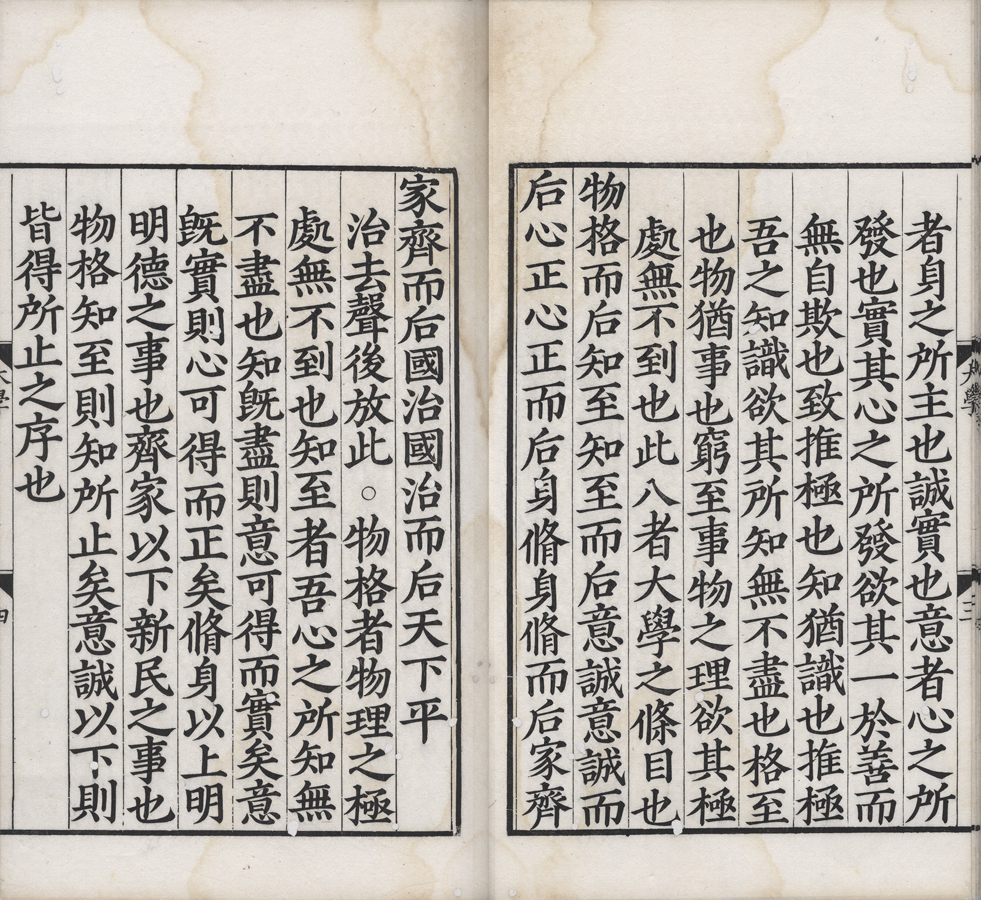 者身之所主也誠實也意者心之所
發也實其心之所發欲其一於善而
無自欺也致推極也知猶識也推極
吾之知識欲其所知無不盡也格至
也物猶事也窮至事物之理欲其極
處無不到也此八者大學之條目也
物格而后知至知至而后意誠意誠而
后心正心正而后身脩身脩而后家齊
家齊而后國治國治而后天下平
治去聲後放此○物格者物理之極
處無不到也知至者吾心之所知無
不盡也知旣盡則意可得而實矣意
旣實則心可得而正矣脩身以上明
明德之事也齊家以下新民之事也
物格知至則知所止矣意誠以下則
皆得所止之序也
大學
四